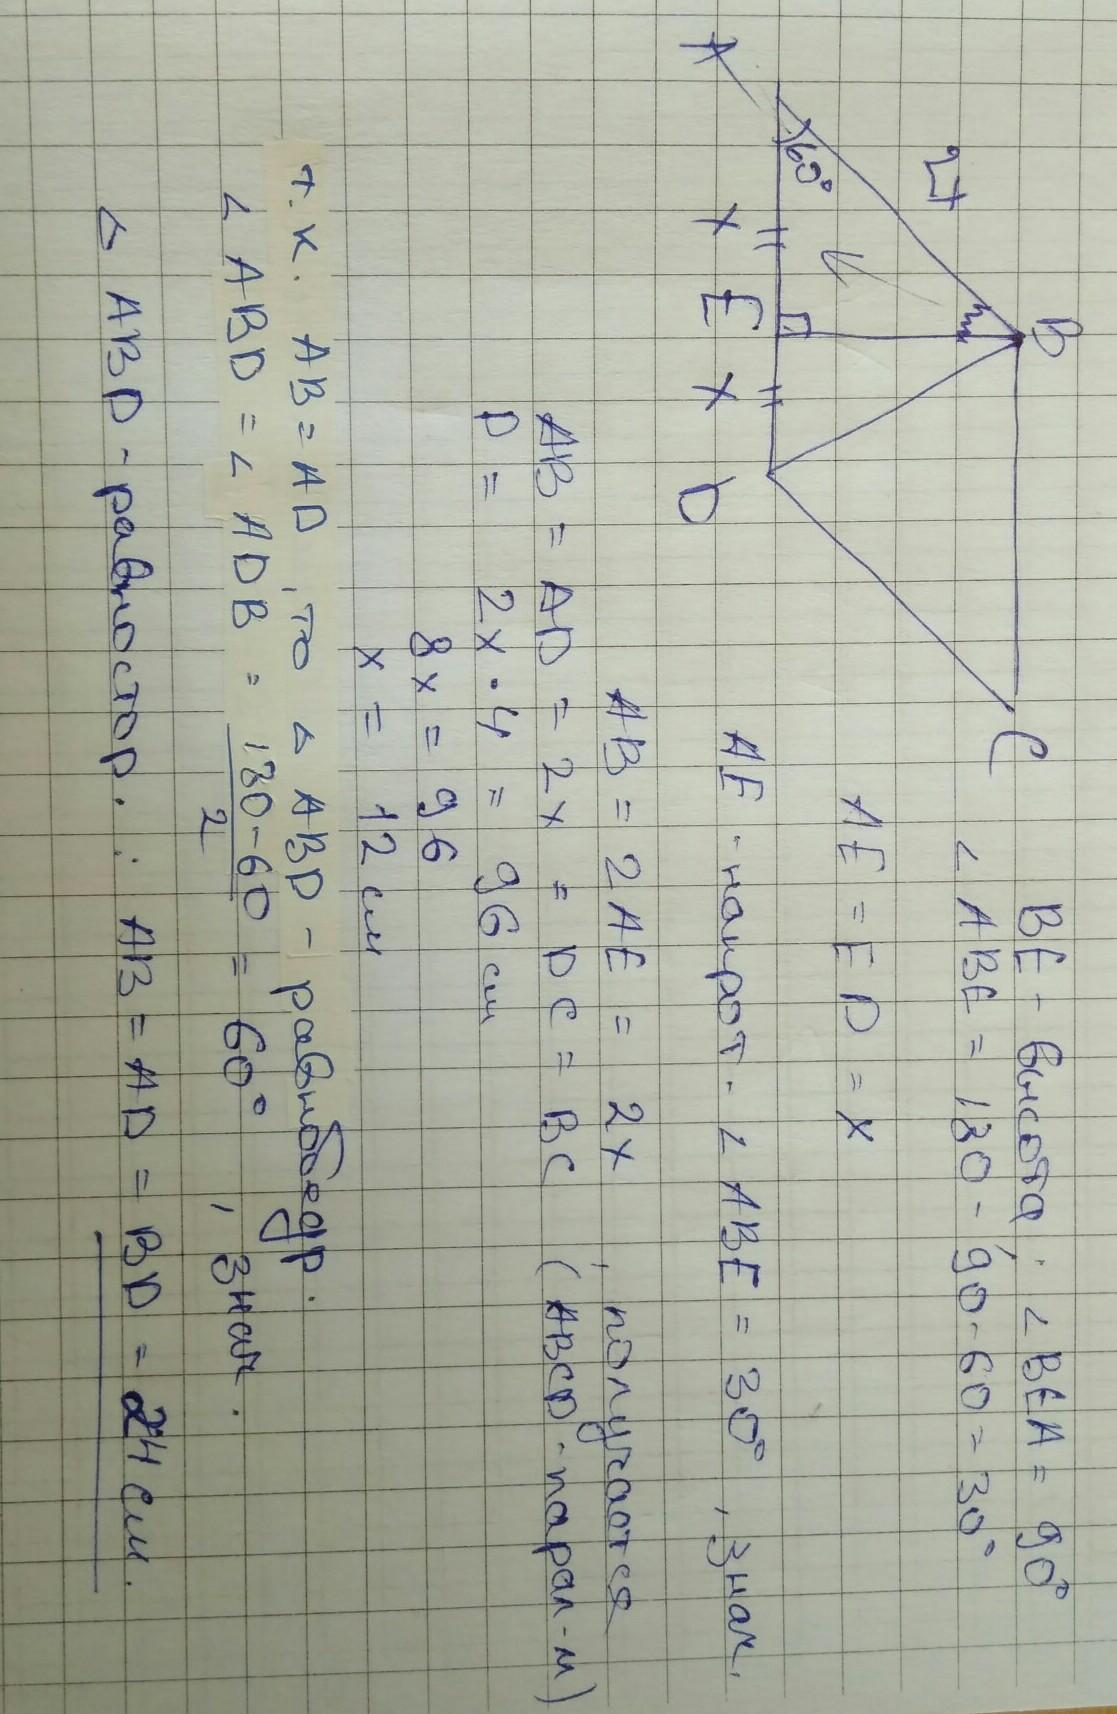 B
2x
60°
A
x
E
x
D
C
BE - высота; ∠BEA = 90°
∠ABE = 180 - 90 - 60 = 30°
AE = ED = x
AE - напрот. ∠ABE = 30°, знач.
AB = 2AE = 2x, получается
AB = AD = 2x = DC = BC (ABCD - парал-м)
P = 2x · 4 = 96 см
8x = 96
x = 12 см
т.к. AB = AD, то △ABD - равнобедр.
∠ABD = ∠ADB = 180 - 60 / 2 = 60°, знач.
△ABD - равностор. : AB = AD = BD = 24 см.